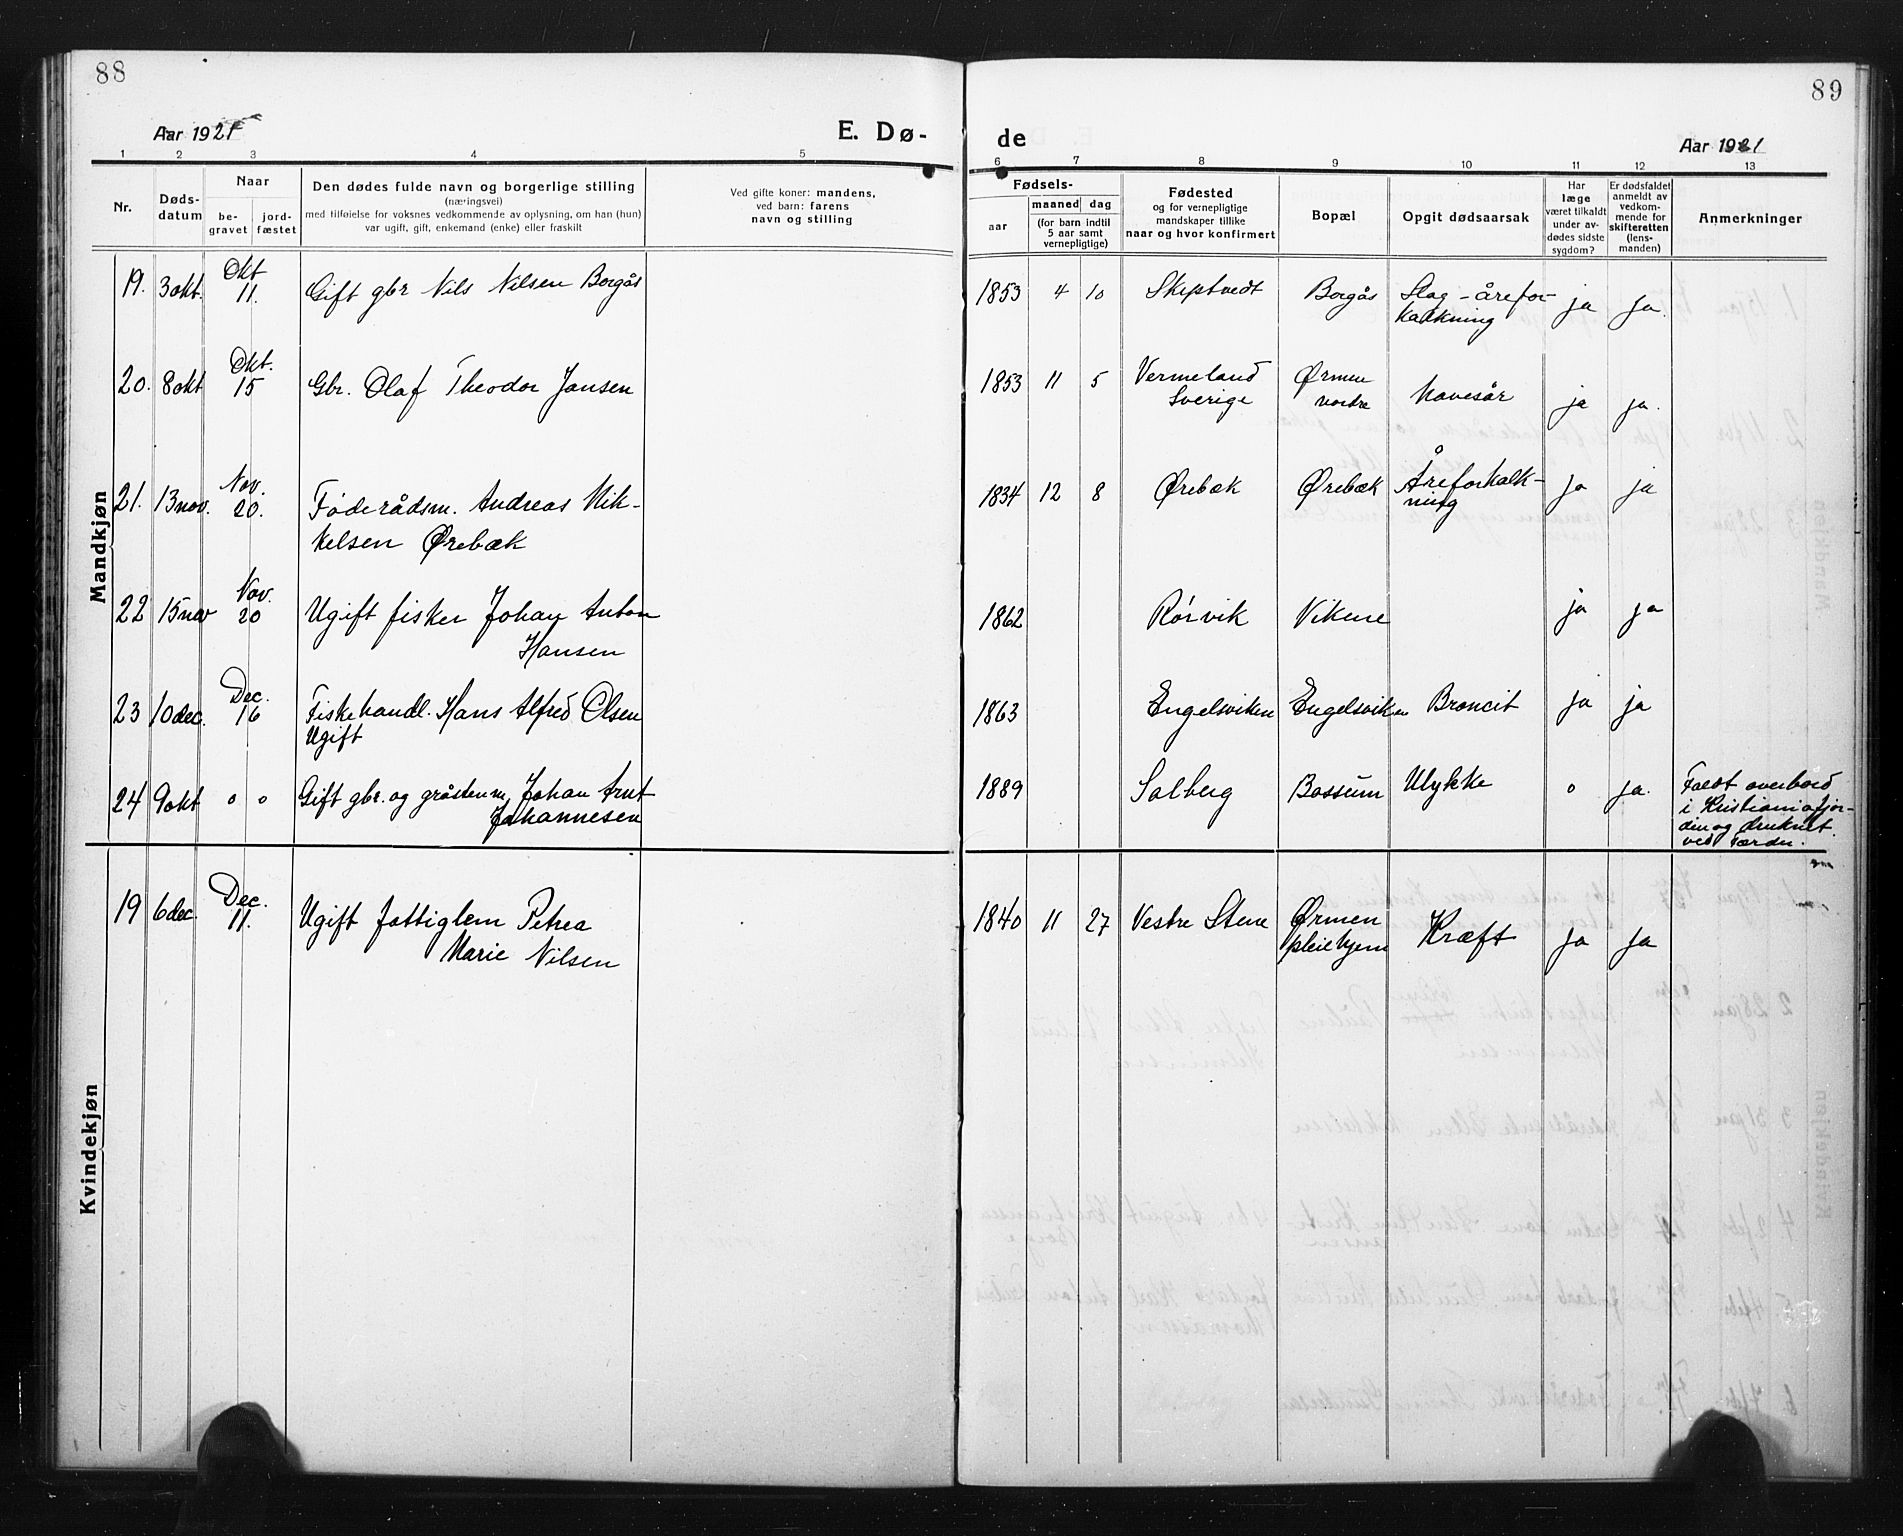 88
89
Aar 1921
E. Dø-
de
Aar 1921
1 2 3 4 5 6 7 8 9 10 11 12 13
Nr.
Døds-
datum
Naar
be-
gravet
jord-
fæstet
Den dødes fulde navn og borgerlige stilling
(næringsvei)
med tilføielse for voksnes vedkommende av oplysning, om han (hun)
var ugift, gift, enkemand (enke) eller fraskilt
Ved gifte koner: mandens,
ved barn: farens
navn og stilling
Fødsels-
aar
maaned dag
(for barn indtil
5 aar samt
vernepligtige)
Fødested
og for vernepligtige
mandskaper tillike
naar og hvor konfirmert
Bopæl
Opgit dødsaarsak
Har
læge
været tilkaldt
under av-
dødes sidste
sygdom?
Er dødsfaldet
anmeldt av
vedkom-
mende for
skifteretten
(lens-
manden)
Anmerkninger
Mandkjøn
19. 3 okt. Okt 11. Gift gbr Nils Nilsen Borgås 1853 4 10 Skiptvedt Borgås Slag - årefor-
kalkning ja ja.
20. 8 okt Okt. 15 Gbr. Olaf Theodor Jansen 1853 11 5 Vermeland
Sverige Ørmen
nordre Navesår ja ja.
21. 13 nov. Nov. 20. Føderådsm. Andreas Mik-
kelsen Ørebæk 1834 12 8 Ørebæk Ørebæk Åreforkalk-
ning ja ja
22 15 nov Nov. 20 Ugift fisker Johan Anton
Hansen 1862 Rørvik Vikene ja ja
23 10 dec. Dec. 16 Fiskehandl. Hans Alfred Olsen
Ugift 1863 Engelsviken Engelsviken Broncit ja ja
24 9 okt o o Gift gbr. og gråstenm. Johan Arnt
Johannesen 1889 Solberg Bossum Ulykke o ja. Faldt overbord
i Kristianiafjor-
den og druknet
ved Færder.
Kvindekjøn
19 6 dec. Dec. 11. Ugift fattiglem Petrea
Marie Nilsen 1840 11 27 Vestre Stene Ørmen
pleiehjem Kræft ja ja